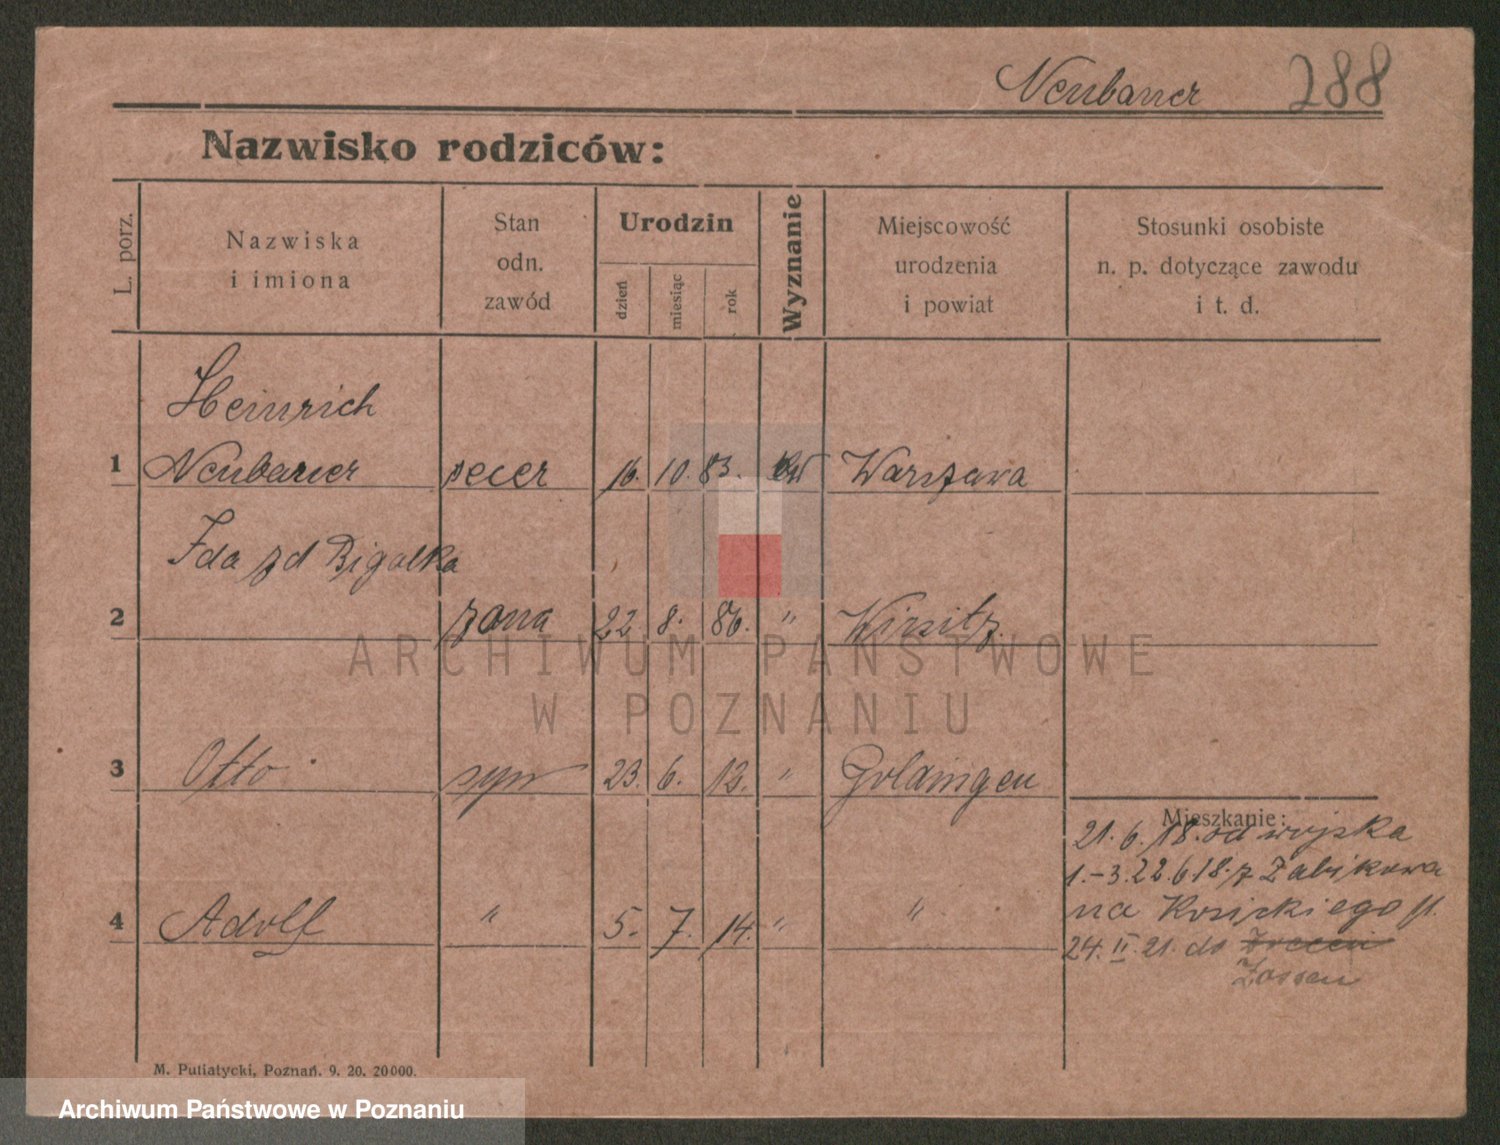 Neubauer 288
Nazwisko rodziców:
L. porz.
Nazwiska
i imiona
Stan
odn.
zawód
Urodzin
dzień
miesiąc
rok
Wyznanie
Miejscowość
urodzenia
i powiat
Stosunki osobiste
n. p. dotyczące zawodu
i t. d.
Heinrich
1 Neubauer secer 16. 10. 83. ew Warszawa
Ida zd Bigalka
2 żona 22 8. 86. " Wirsitz
3 Otto syn 23. 6. 12. " Goldingen
Mieszkanie:
21. 6. 18. od wojska
1.-3. 22. 6 18. z Żabikowa
na
4 Adolf " 5. 7. 14. " "
24. II. 21. do
Zossen
M. Putiatycki, Poznań. 9. 20. 20000.
ARCHIWUM PAŃSTWOWE
W POZNANIU
Archiwum Państwowe w Poznaniu